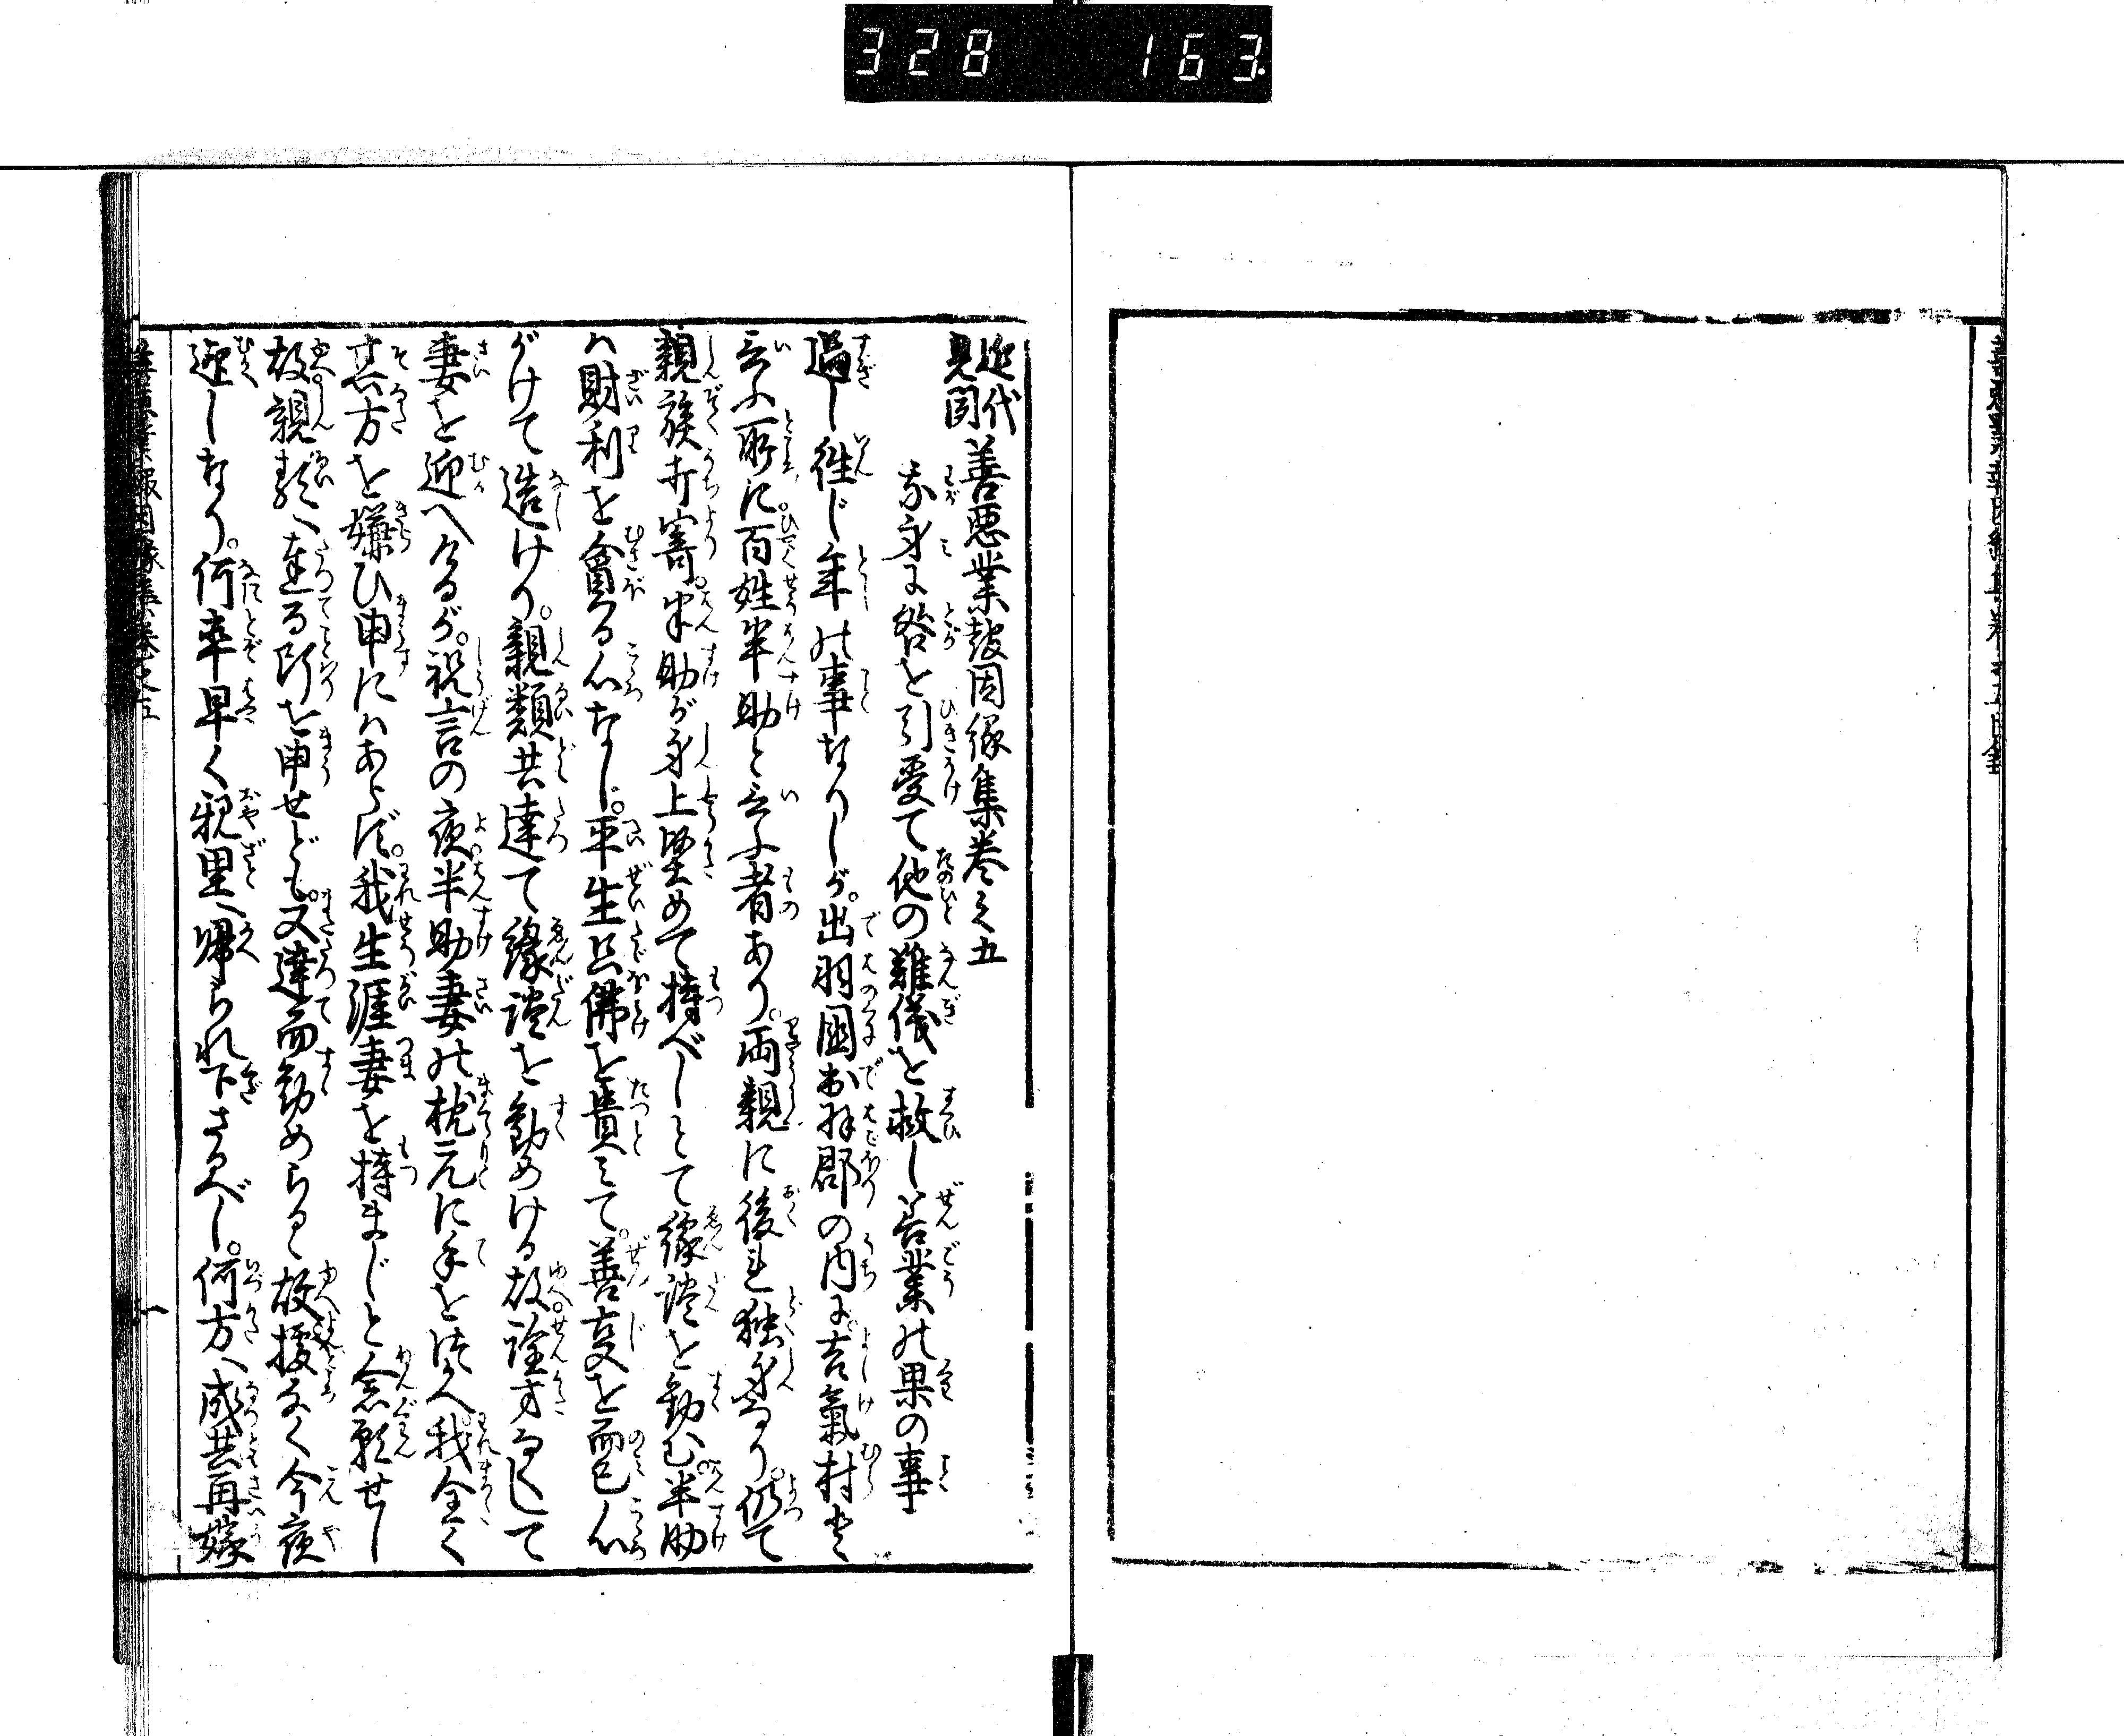 328 163
近代見聞 善悪業報因縁集巻之五
我身に咎を引受て他の難儀を救し善業の果の事
過し往じ年の事なりしが。出羽国出羽郡の内に。吉氣村と
云ふ所に。百姓半助と云ふ者あり。両親に後れ独身なり。依て
親族打寄。半助が身上堅めて持べしとて縁談を勧む。半助
ハ財利を貪る心なし。平生只佛を貴みて。善事を而已心
がけて造けり。親類共達て縁談を勧めける故。詮方なくして
妻を迎へけるが。祝言の夜。半助妻の枕元に手をつかへ我全く
其方を嫌ひ申にハあらず。我生涯妻を持まじと念願せし
故。親類へ達る断を申せども。又達而勧めらるゝ故拠なく今夜
迎しなり。何卒早く親里へ帰られ下さるべし。何方へ成共再嫁